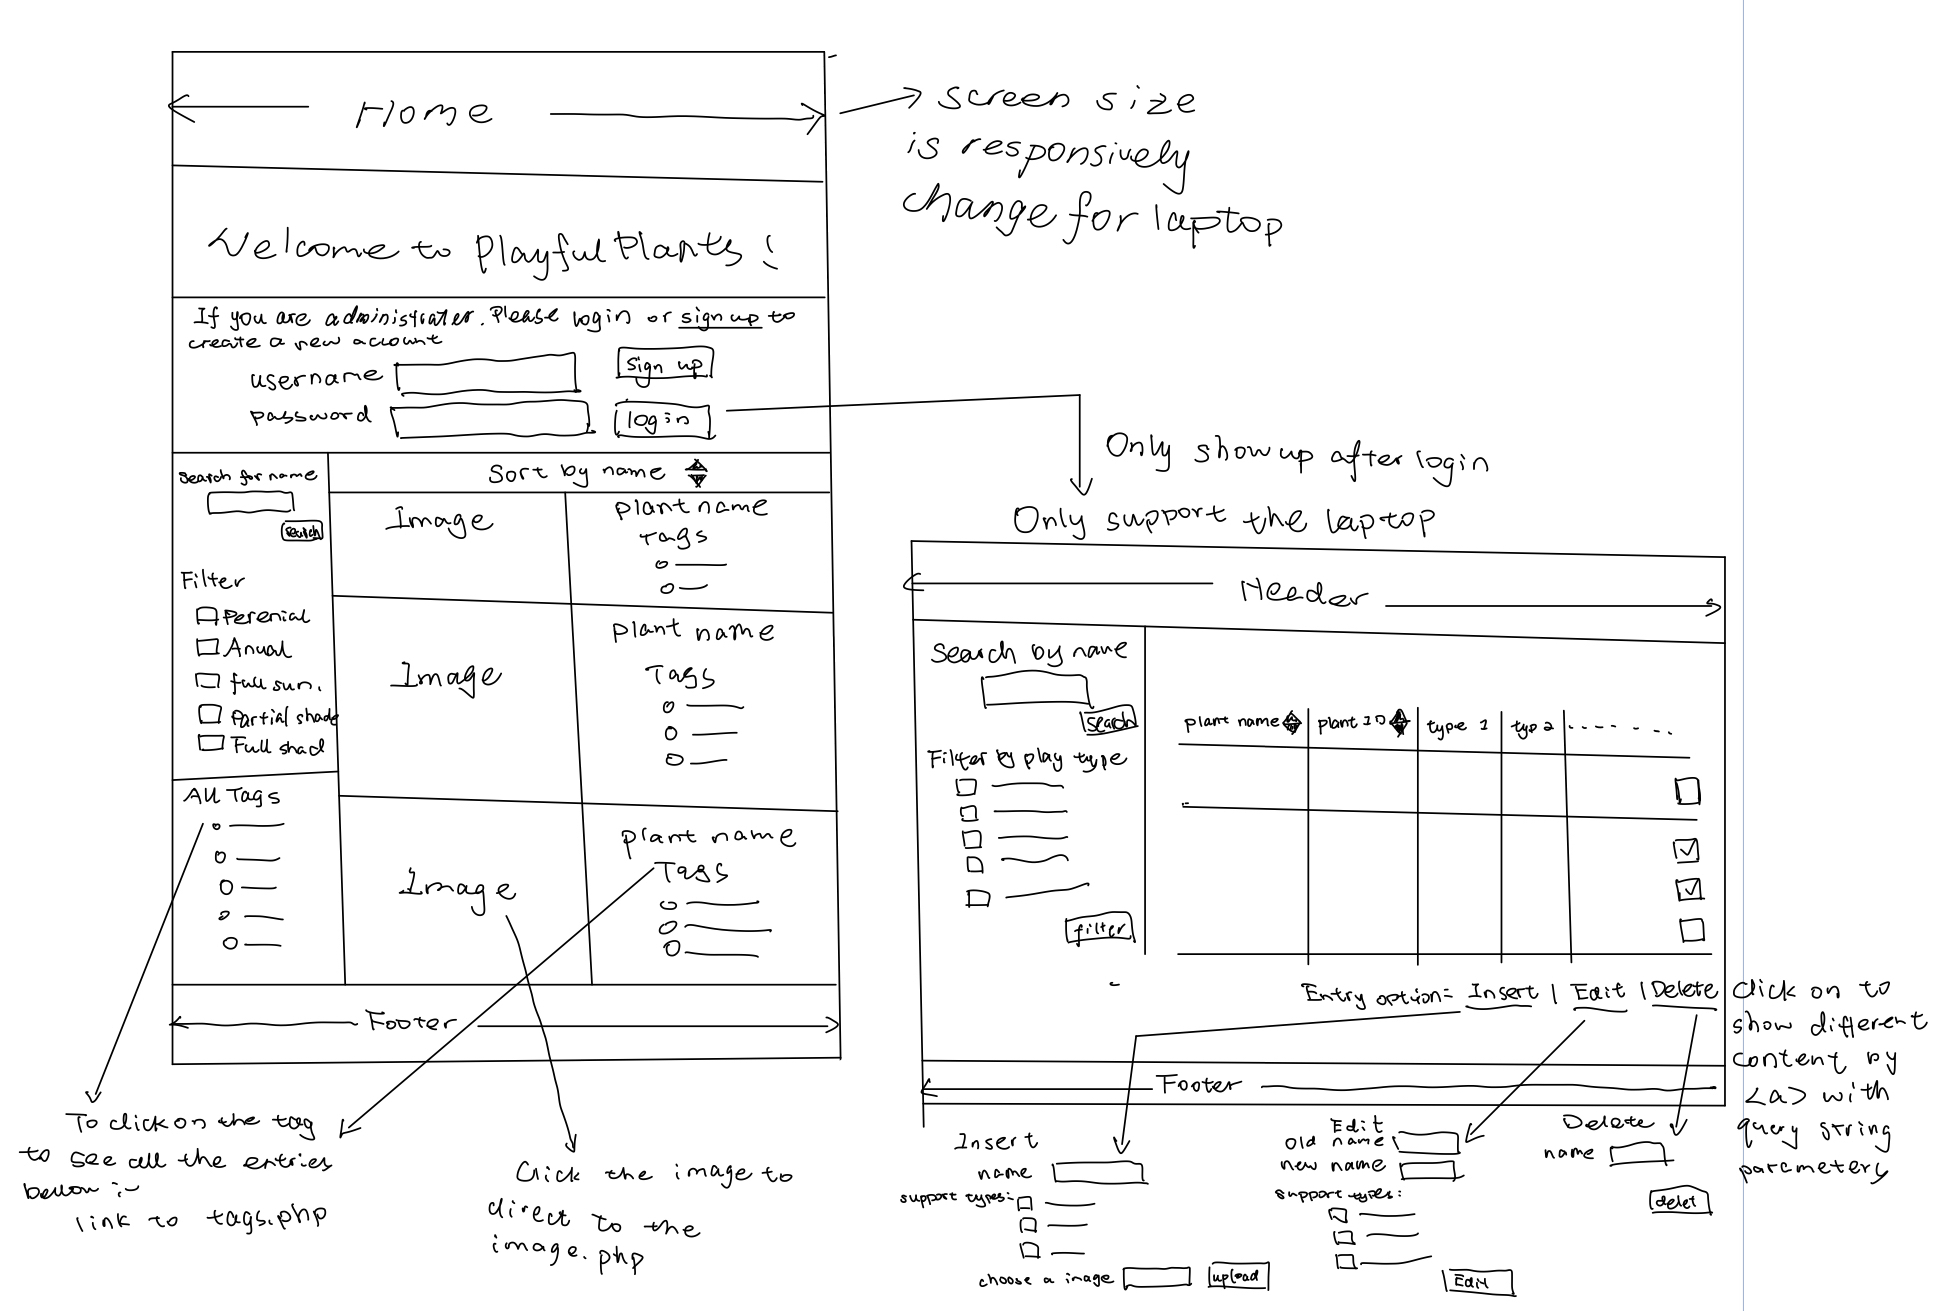 Home
screen size
is responsively
change for laptop
Welcome to Playful Plants!
If you are administrater. Please login or sign up to
create a new account
username
sign up
password
login
Only show up after login
Only support the laptop
Search for name
search
Filter
Perenial
Anual
full sun.
Partial shade
Full shad
All Tags
Sort by name
Image
plant name
Tags
Image
plant name
Tags
Image
plant name
Tags
Footer
To click on the tag
to see all the entries
bellow :-
link to tags.php
Click the image to
direct to the
image.php
Header
Search by name
search
Filter by play type
filter
plant name
plant ID
type 1
typ 2
Entry option: Insert | Edit | Delete
Click on to
show different
content by
<a> with
query string
parameters
Footer
Insert
name
support types:
choose a image
upload
Edit
old name
new name
support types:
Edit
Delete
name
delet